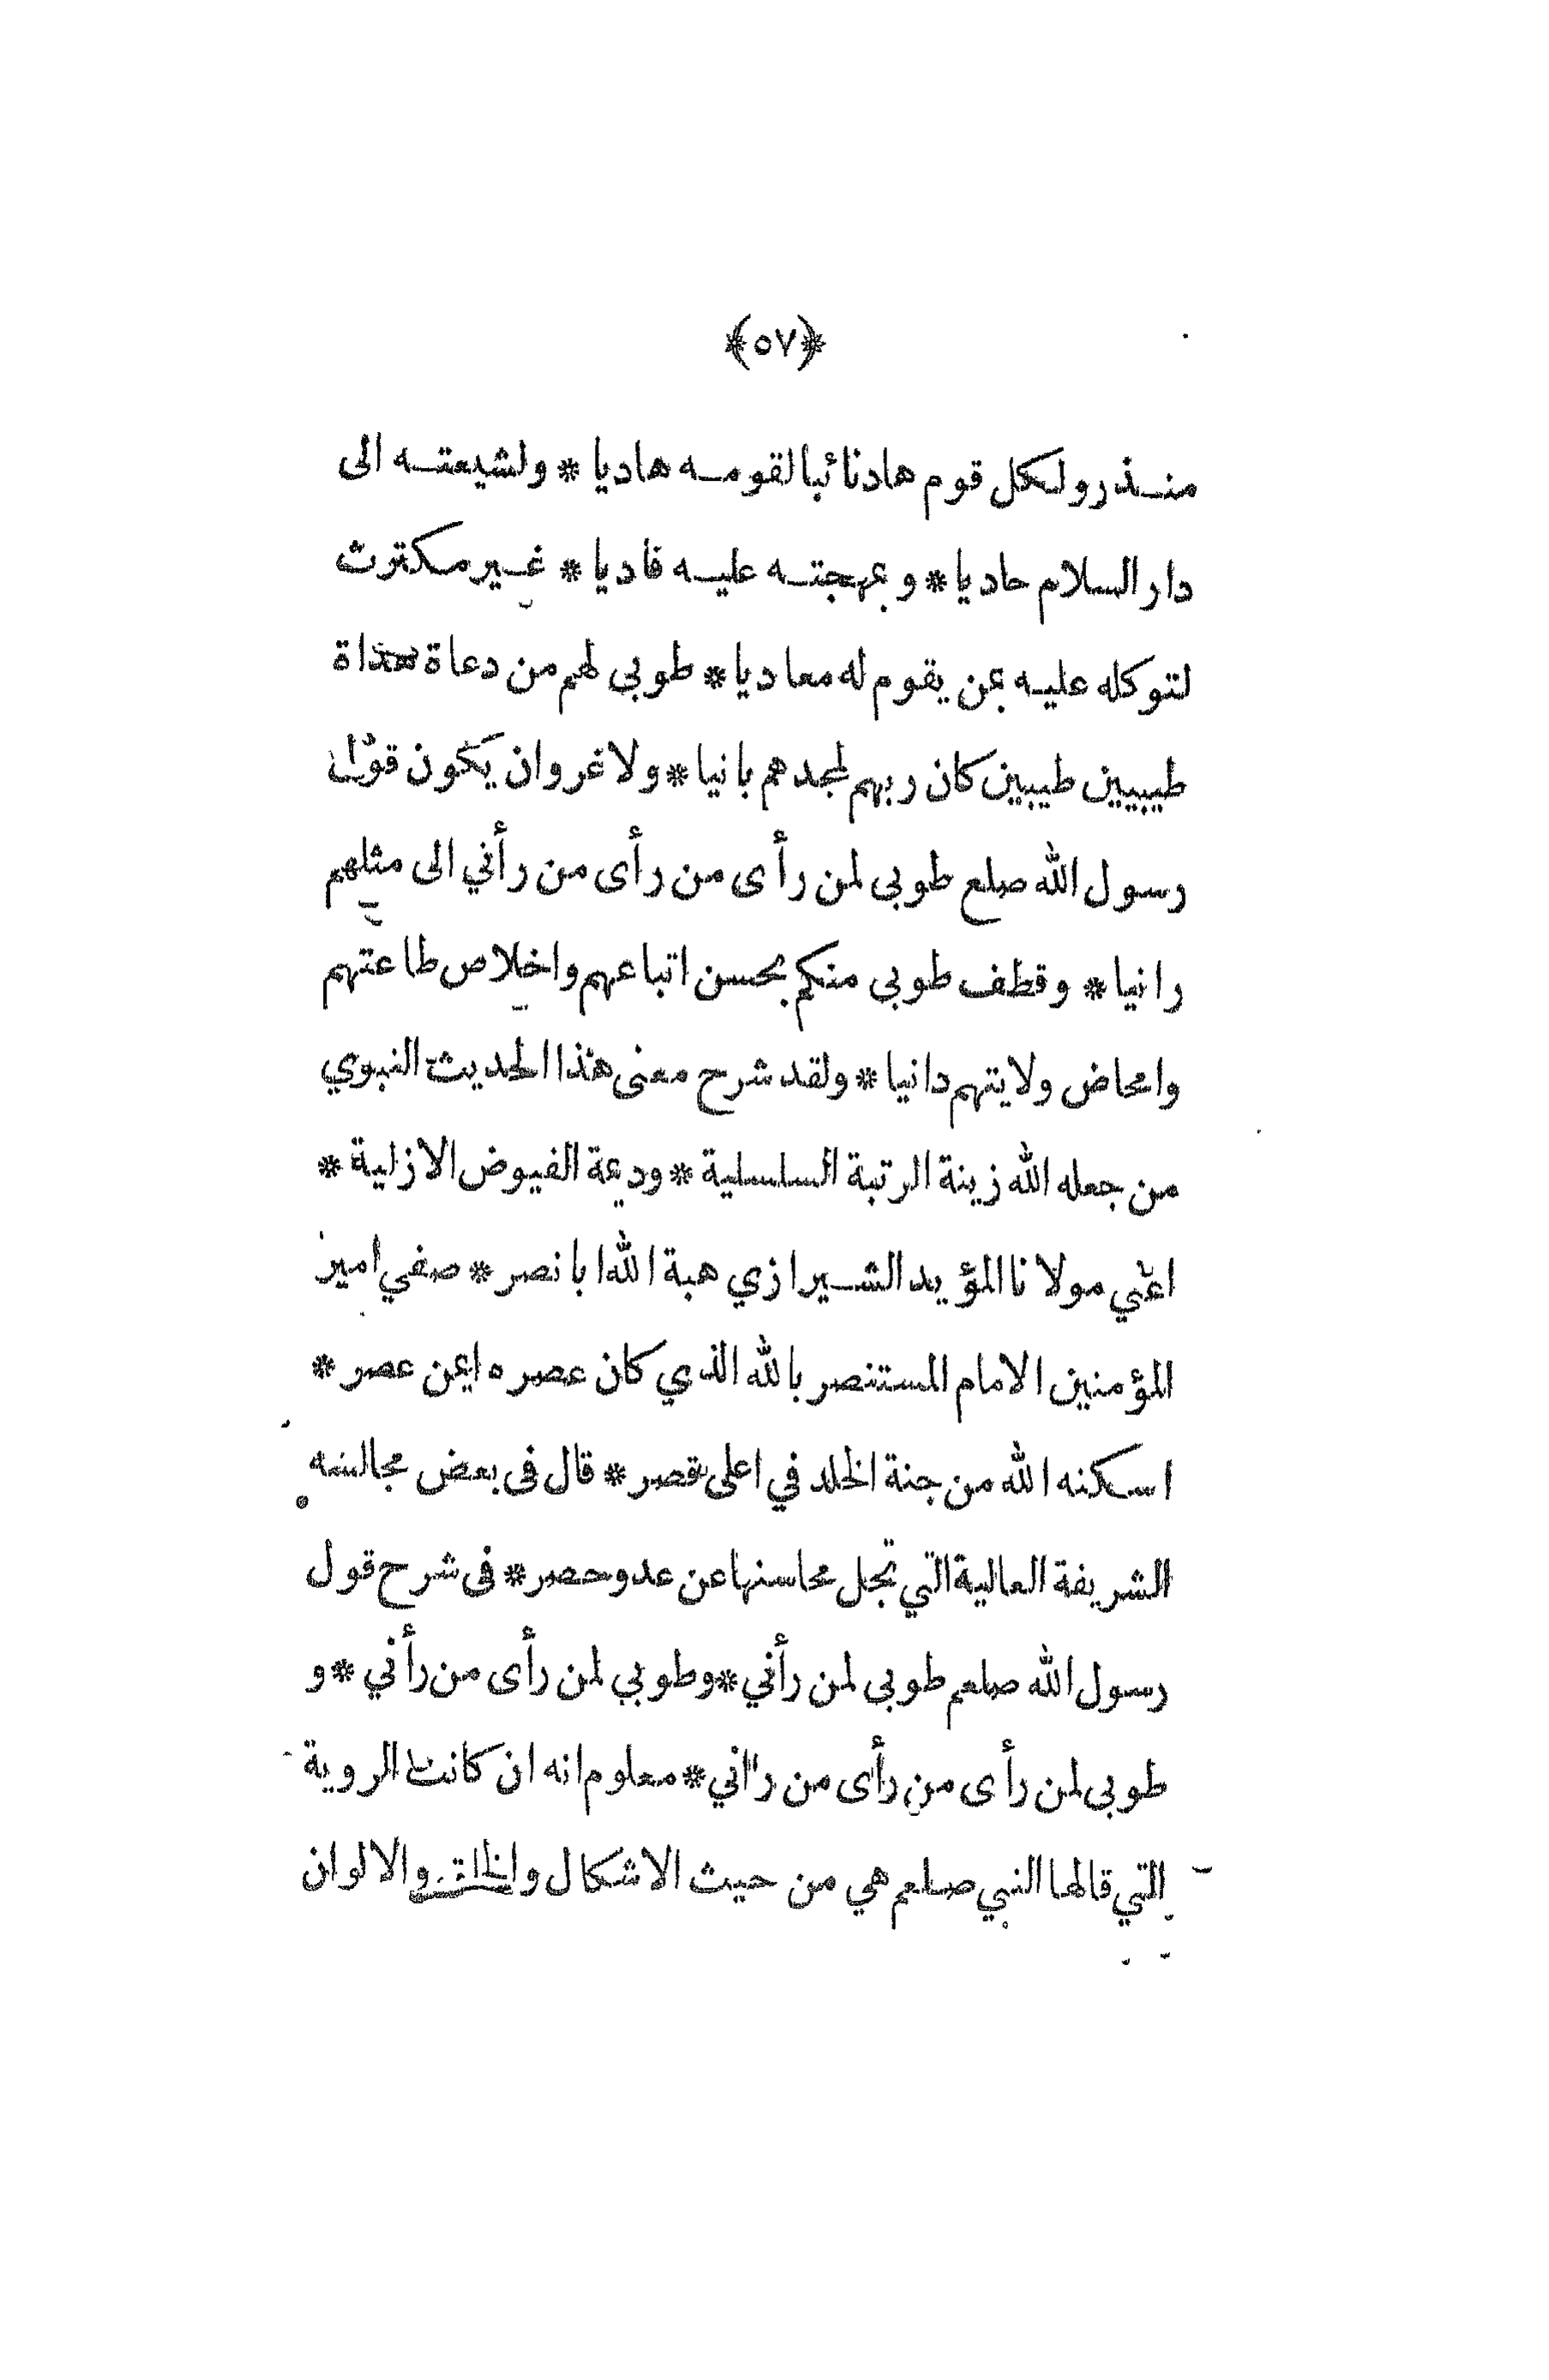 ﴿٥٧﴾
منذر ولكل قوم هاد نائبا لقومه هاديا * ولشيعته الى
دار السلام حاديا * وبمهجته عليه فاديا * غير مكترث
لتوكله عليه بمن يقوم له معاديا * طوبى لهم من دعاة هداة
طيبيين طيبين كان ربهم لمجدهم بانيا * ولا غرو ان يكون قول
رسول الله صلع طوبى لمن رأى من رأى من رأني الى مثلهم
رانيا * وقطف طوبى منكم بحسن اتباعهم واخلاص طاعتهم
وامحاض ولايتهم دانيا * ولقد شرح معنى هذا الحديث النبوي
من جعله الله زينة الرتبة السلسلية * وديمة الفيوض الازلية *
اعني مولانا المؤيد الشيرازي هبة الله ابا نصر * صفي امير
المؤمنين الامام المستنصر بالله الذي كان عصره ايمن عصر *
اسكنه الله من جنة الخلد في اعلى قصر * قال فى بعض مجالسه
الشريفة العالية التي تجل محاسنها عن عد وحصر * فى شرح قول
رسول الله صلعم طوبى لمن رأني * وطوبي لمن رأى من رأني * و
طوبى لمن رأى من رأى من رأني * معلوم انه ان كانت الروية
التي قالها النبي صلعم هي من حيث الاشكال والخلق والالوان